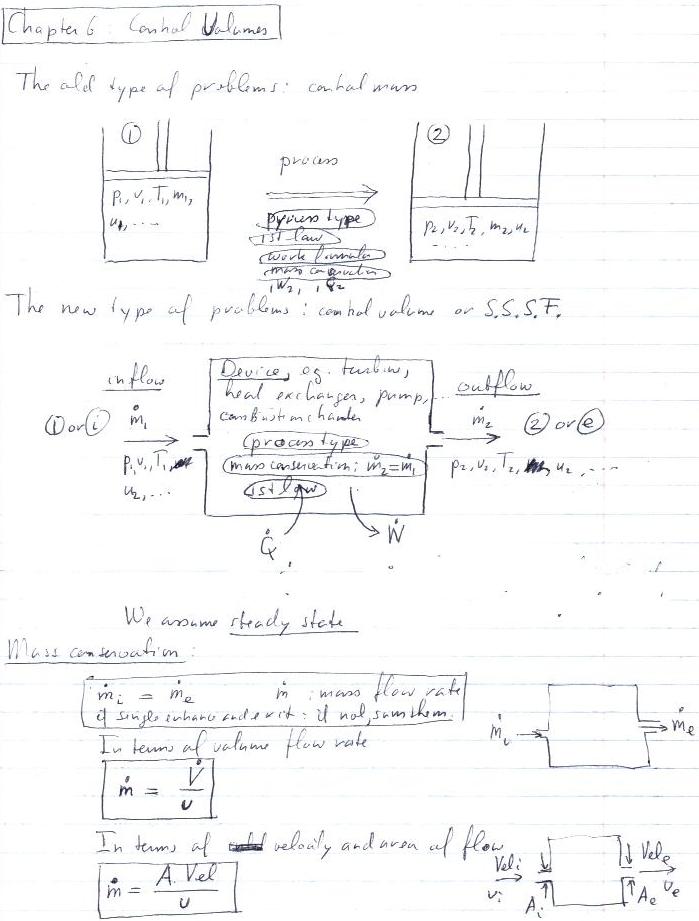 Chapter 6: Control Volumes
The old type of problems: control mass
① ②
process
p₁, v₁, T₁, m₁,
u₁, ....
process type
1st law
work formula
mass conservation
₁W₂, ₁Q₂
p₂, v₂, T₂, m₂, u₂
....
The new type of problems: control volume or S.S.S.F.
inflow
① or ⓘ
ṁ₁
p₁, v₁, T₁,
u₂, ...
Device, eg. turbine,
heat exchanger, pump, ...
combustion chamber
process type
mass conservation: ṁ₂ = ṁ₁
1st law
outflow
ṁ₂
② or ⓔ
p₂, v₂, T₂, u₂, ...
Q̇ Ẇ
We assume steady state
Mass conservation:
ṁᵢ = ṁₑ ṁ : mass flow rate
if single entrance and exit: if not, sum them.
ṁᵢ ṁₑ
In terms of volume flow rate
ṁ = V̇ / v
In terms of velocity and area of flow
ṁ = A. Vel / v
Velᵢ Velₑ
vᵢ Aᵢ Aₑ vₑ